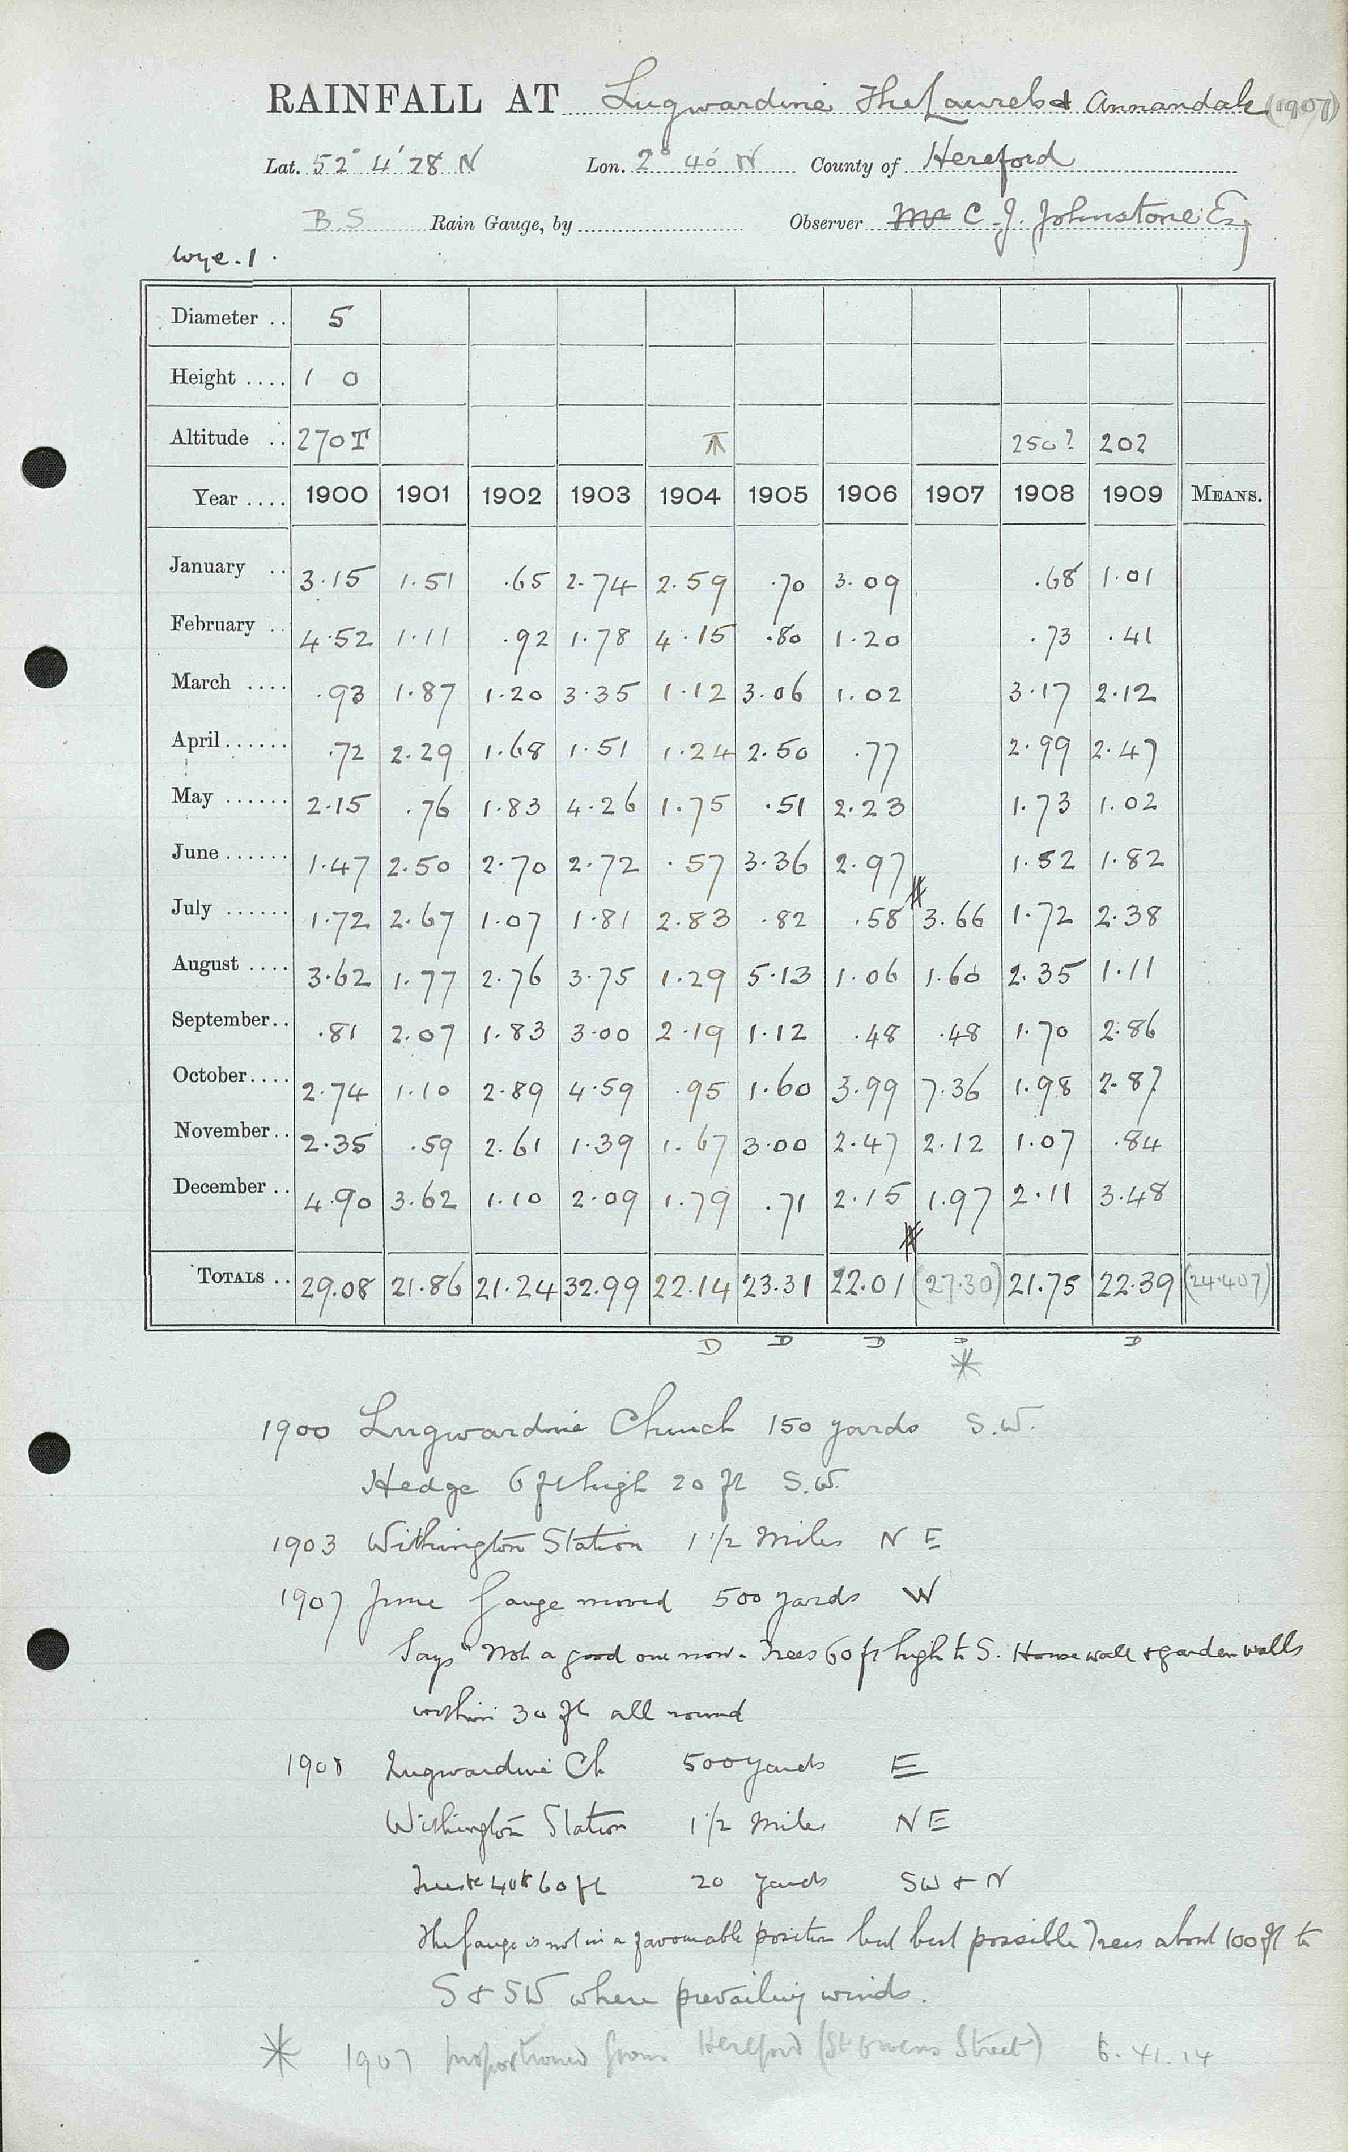 RAINFALL AT Lugwardine The Laurels & Annandale (1907)
Lat. 52° 4' 28 N Lon. 2° 40' W County of Hereford
B S Rain Gauge, by Observer Mr C. J. Johnstone Esq
Wye. 1.
Diameter .. 5
Height .... 1 0
Altitude .. 270 T 250? 202
Year .... 1900 1901 1902 1903 1904 1905 1906 1907 1908 1909 MEANS.
January .. 3.15 1.51 .65 2.74 2.59 .70 3.09 .68 1.01
February .. 4.52 1.11 .92 1.78 4.15 .80 1.20 .73 .41
March .... .93 1.87 1.20 3.35 1.12 3.06 1.02 3.17 2.12
April ...... .72 2.29 1.68 1.51 1.24 2.50 .77 2.99 2.47
May ...... 2.15 .76 1.83 4.26 1.75 .51 2.23 1.73 1.02
June ...... 1.47 2.50 2.70 2.72 .57 3.36 2.97 1.52 1.82
July ...... 1.72 2.67 1.07 1.81 2.83 .82 .58 3.66 1.72 2.38
August .... 3.62 1.77 2.76 3.75 1.29 5.13 1.06 1.60 2.35 1.11
September.. .81 2.07 1.83 3.00 2.19 1.12 .48 .48 1.70 2.86
October.... 2.74 1.10 2.89 4.59 .95 1.60 3.99 7.36 1.98 2.87
November.. 2.35 .59 2.61 1.39 1.67 3.00 2.47 2.12 1.07 .84
December .. 4.90 3.62 1.10 2.09 1.79 .71 2.15 1.97 2.11 3.48
TOTALS .. 29.08 21.86 21.24 32.99 22.14 23.31 22.01 (27.30) 21.75 22.39 (24.407)
D D D D D
*
1900 Lugwardine Church 150 yards S.W.
Hedge 6 ft high 20 ft S.W.
1903 Withington Station 1 1/2 Miles N E
1907 June Gauge moved 500 yards W
Says "Not a good one now. Trees 60 ft high to S. House wall & garden walls
within 30 ft all round
1908 Lugwardine Ch 500 yards E
Withington Station 1 1/2 Miles NE
40 to 60 ft 20 yards SW & N
The Gauge is not in a favourable position but best possible Trees about 100 ft to
S & SW where prevailing winds.
* 1907 proportioned from Hereford (St Owens Street) 6.41.14